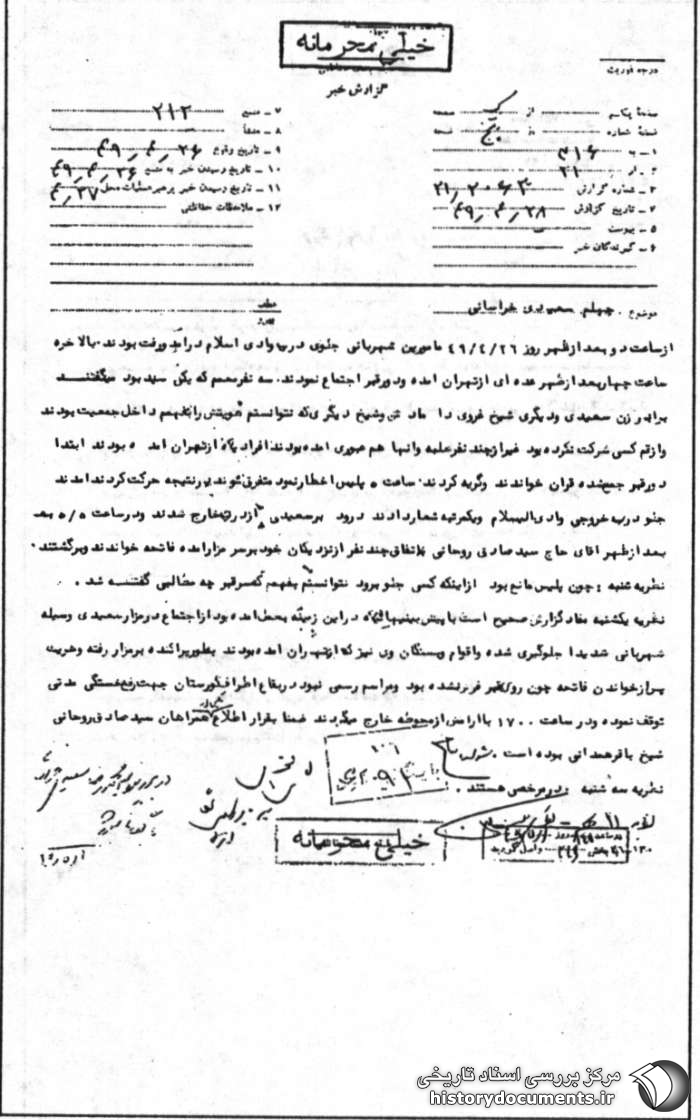 خیلی محرمانه
گزارش خبر
درجه فوریت
صفحه یکم از یک صفحه
نسخه شماره از پنج نسخه
۱ – به ۳۱۶
۲ – از ۲۱
۳ – شماره گزارش ۲۱/۲۰۶۳
۴ – تاریخ گزارش ۴۹/۴/۲۸
۵ – پیوست
۶ – گیرندگان خبر
۷ – منبع ۲۱۲
۸ – منشأ
۹ – تاریخ وقوع ۴۹/۴/۲۶
۱۰ – تاریخ رسیدن خبر به منبع ۴۹/۴/۲۶
۱۱ – تاریخ رسیدن خبر برهبر عملیات محل ۴/۲۷
۱۲ – ملاحظات حفاظتی
موضوع چهلم سعیدی خراسانی
از ساعت دو بعد از ظهر روز ۴۹/۴/۲۶ مامورین شهربانی جلوی درب وادی السلام در آمد و رفت بودند. بالاخره
ساعت چهار بعد از ظهر عده ای از تهران امده و در قبر اجتماع نمودند. سه نفر معمم که یکی سید بود میگفتند
برادر زن سعیدی و دیگری شیخ غروی داماد ش و شیخ دیگری که نتوانستم هویتش را بفهمم داخل جمعیت بودند
و از قم کسی شرکت نکرده بود غیر از چند نفر طلبه و انها هم عبوری امده بودند افراد یکه از تهران امده بودند ابتدا
دور قبر جمع شده قران خواندند و گریه کردند. ساعت ۵ پلیس اخطار نمود متفرق شوند در نتیجه حرکت کردند امدند
جلو درب خروجی وادی السلام و یکمرتبه شعار دادند درود بر سعیدی و از درب خارج شدند و در ساعت ۵/۵ بعد
بعد از ظهر اقای حاج سید صادق روحانی باتفاق چند نفر از نزدیکان خود بر سر مزار امده فاتحه خواندند و برگشتند.
نظریه شنبه : چون پلیس مانع بود از اینکه کسی جلو برود نتوانستم بفهمم که سر قبر چه مطالبی گفته شد .
نظریه یکشنبه مفاد گزارش صحیح است با پیش بینیهائیکه در این زمینه بعمل امده بود از اجتماع در مزار سعیدی وسیله
شهربانی شدیدا جلوگیری شده و اقوام و بستگان وی نیز که از تهران امده بودند بطور پراکنده بر مزار رفته و هریک
پس از خواندن فاتحه چون روی قبر فرش نشده بود و مراسم رسمی نبود در بقاع اطراف گورستان جهت رفع خستگی مدتی
توقف نموده و در ساعت ۱۷۰۰ با اراض از محوطه خارج میگردند ضمنا بقرار اطلاع یکی از همراهان سید صادق روحانی
شیخ باقر همدانی بوده است .
نظریه سه شنبه در مرخصی هستند .
خیلی محرمانه
مرکز بررسی اسناد تاریخی
historydocuments.ir